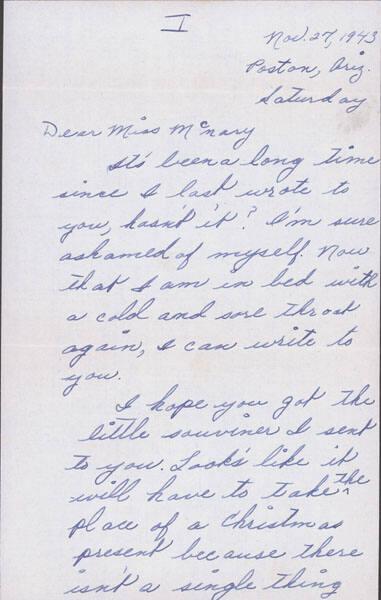 I
Nov. 27, 1943
Poston, Ariz.
Saturday
Dear Miss McNary
It's been a long time
since I last wrote to
you, hasn't it? I'm sure
ashamed of myself. Now
that I am in bed with
a cold and sore throat
again, I can write to
you.
I hope you got the
little souviner I sent
to you. Look's like it
will have to take the
place of a Christmas
present because there
isn't a single thing